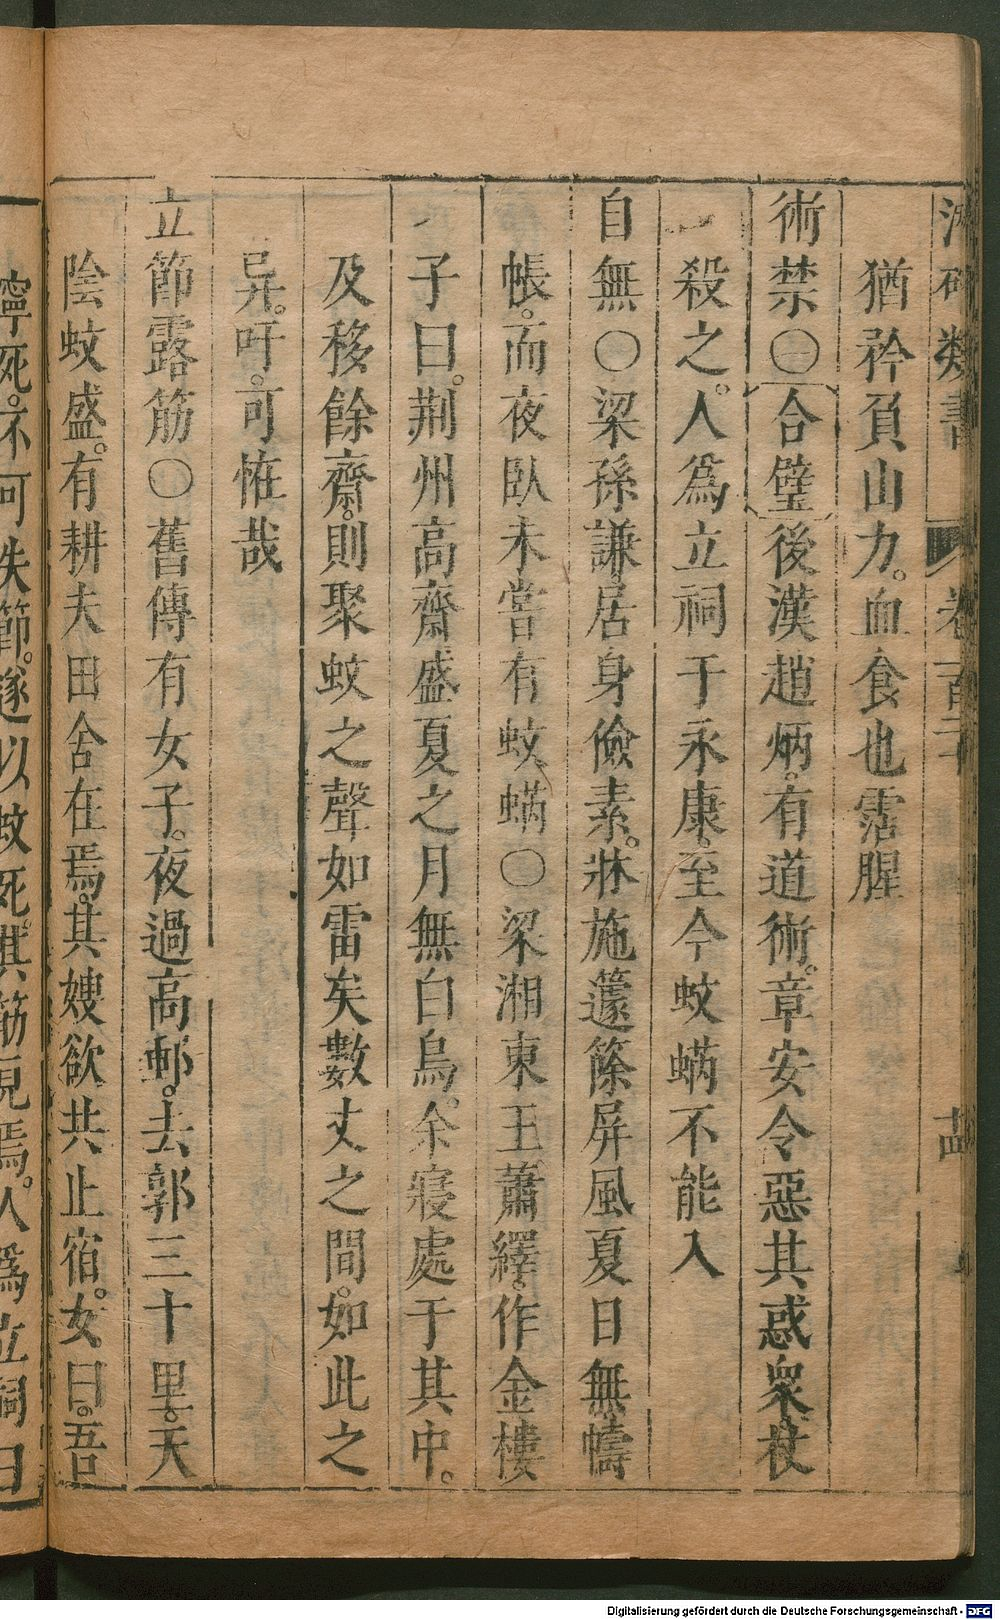 類書 卷百二十
猶矜負山力。血食也霑腥
術禁〇合璧後漢趙炳。有道術。章安令惡其惑衆杖
殺之。人爲立祠于永康。至今蚊蟎不能入
自無〇梁孫謙居身儉素。牀施籧篨屏風夏日無幬
帳。而夜臥未嘗有蚊蟎〇梁湘東王蕭繹。作金樓
子曰。荆州高齋盛夏之月無白鳥。余寢處于其中。
及移餘齋。則聚蚊之聲如雷矣數丈之間。如此之
异。吁。可恠哉
立節露筋〇舊傳有女子。夜過高郵。去郭三十里。天
陰蚊盛。有耕夫田舍在焉。其嫂欲共止宿。女。曰。吾
寧死。不可失節。遂以蚊死。其筋見焉。人爲立祠曰
Digitalisierung gefördert durch die Deutsche Forschungsgemeinschaft - DFG